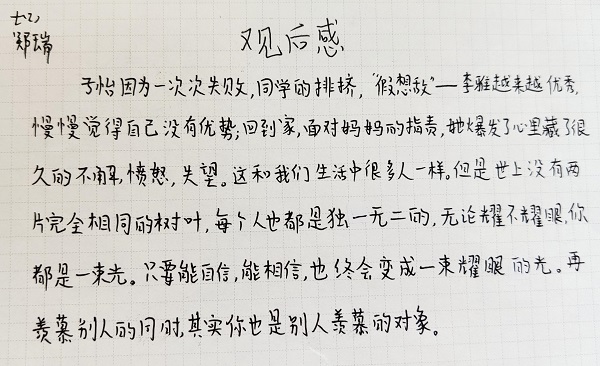 七(2)
郑瑞
观后感
子怡因为一次次失败,同学的排挤,“假想敌”—李雅越来越优秀,
慢慢觉得自己没有优势;回到家,面对妈妈的指责,她爆发了心里藏了很
久的不解,愤怒,失望。这和我们生活中很多人一样。但是世上没有两
片完全相同的树叶,每个人也都是独一无二的,无论耀不耀眼,你
都是一束光。只要能自信,能相信,也终会变成一束耀眼的光。再
羡慕别人的同时,其实你也是别人羡慕的对象。